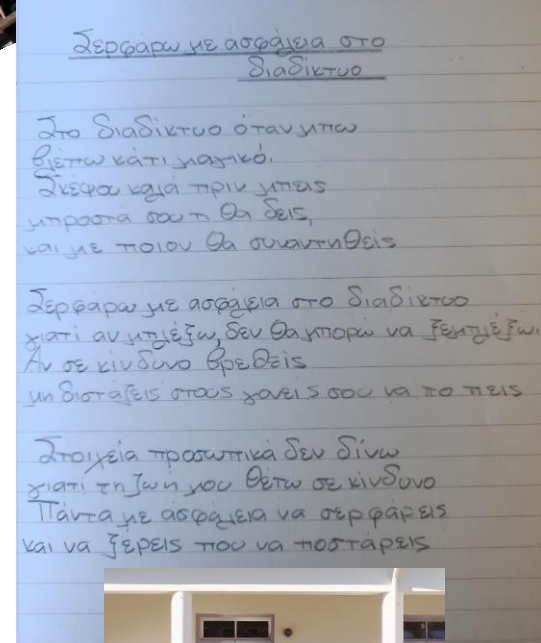 Σερφάρω με ασφάλεια στο
διαδίκτυο
Στο διαδίκτυο όταν μπω
βλέπω κάτι μαγικό.
Σκέψου καλά πριν μπεις
μπροστά σου τι θα δεις,
και με ποιον θα συναντηθείς
Σερφάρω με ασφάλεια στο διαδίκτυο
γιατί αν μπλέξω, δεν θα μπορώ να ξεμπλέξω.
Αν σε κίνδυνο βρεθείς
μη διστάζεις στους γονείς σου να το πεις
Στοιχεία προσωπικά δεν δίνω
γιατί τη ζωή μου θέτω σε κίνδυνο
Πάντα με ασφάλεια να σερφάρεις
και να ξέρεις που να ποστάρεις